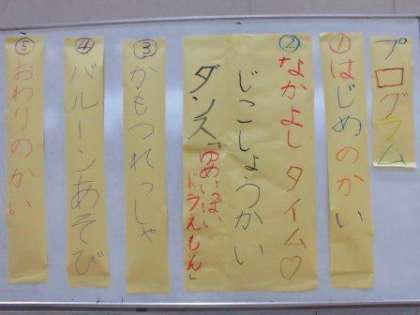 プログラム
①はじめのかい
②なかよしタイム♡
じこしょうかい
ダンス「ゆめいっぱい
ドラえもん」
③かもつれっしゃ
④バルーンあそび
⑤おわりのかい